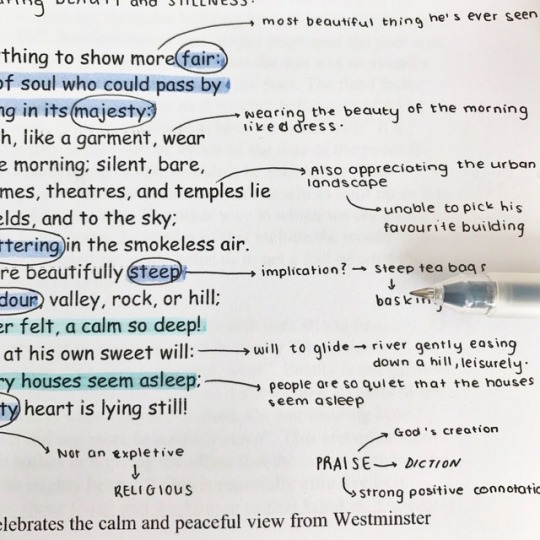 BEAUTY and STILLNESS:
most beautiful thing he's ever seen
thing to show more fair:
of soul who could pass by
ng in its majesty:
wearing the beauty of the morning
like a dress.
h, like a garment, wear
e morning; silent, bare,
Also appreciating the urban
landscape
mes, theatres, and temples lie
unable to pick his
favourite building
elds, and to the sky;
ttering in the smokeless air.
re beautifully steep
implication? → steep tea bags
basking
dour, valley, rock, or hill;
er felt, a calm so deep!
at his own sweet will:
will to glide → river gently easing
down a hill, leisurely.
ry houses seem asleep;
people are so quiet that the houses
seem asleep
ty heart is lying still!
Not an expletive
RELIGIOUS
God's creation
PRAISE → DICTION
strong positive connotatio
elebrates the calm and peaceful view from Westminster